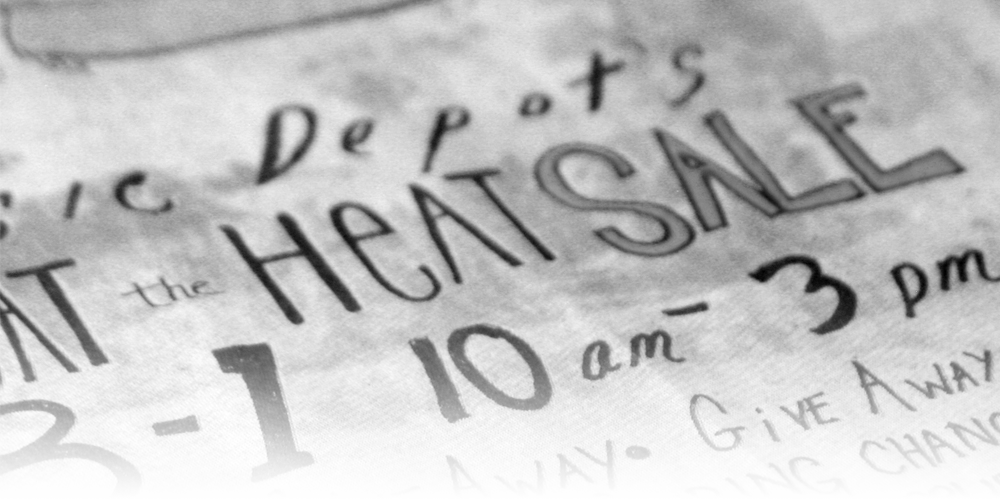 Depot's
AT the HeAT SALE
3-1 10 am - 3 pm
AWAY. GiVE AWAY